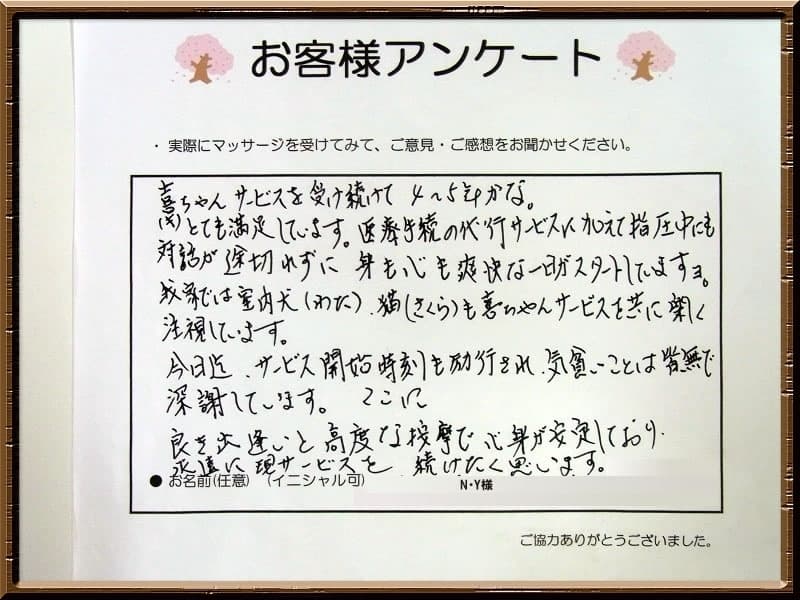 お客様アンケート
・ 実際にマッサージを受けてみて、ご意見・ご感想をお聞かせください。
喜ちゃんサービスを受け続けて 4～5年かな。
とても満足しています。医療手続の代行サービスに加えて指圧中にも
対話が途切れずに 身も心も爽快な一日がスタートしていますョ。
我家では室内犬(わた)、猫(さくら)も喜ちゃんサービスを共に楽く
注視しています。
今日迄、サービス開始時刻も励行され、気貧いことは皆無で
深謝しています。 ここに
良き出逢いと高度な按摩で心身が安定しており、
永遠に現サービスを 続けたく思います。
● お名前(任意) (イニシャル可) N・Y様
ご協力ありがとうございました。